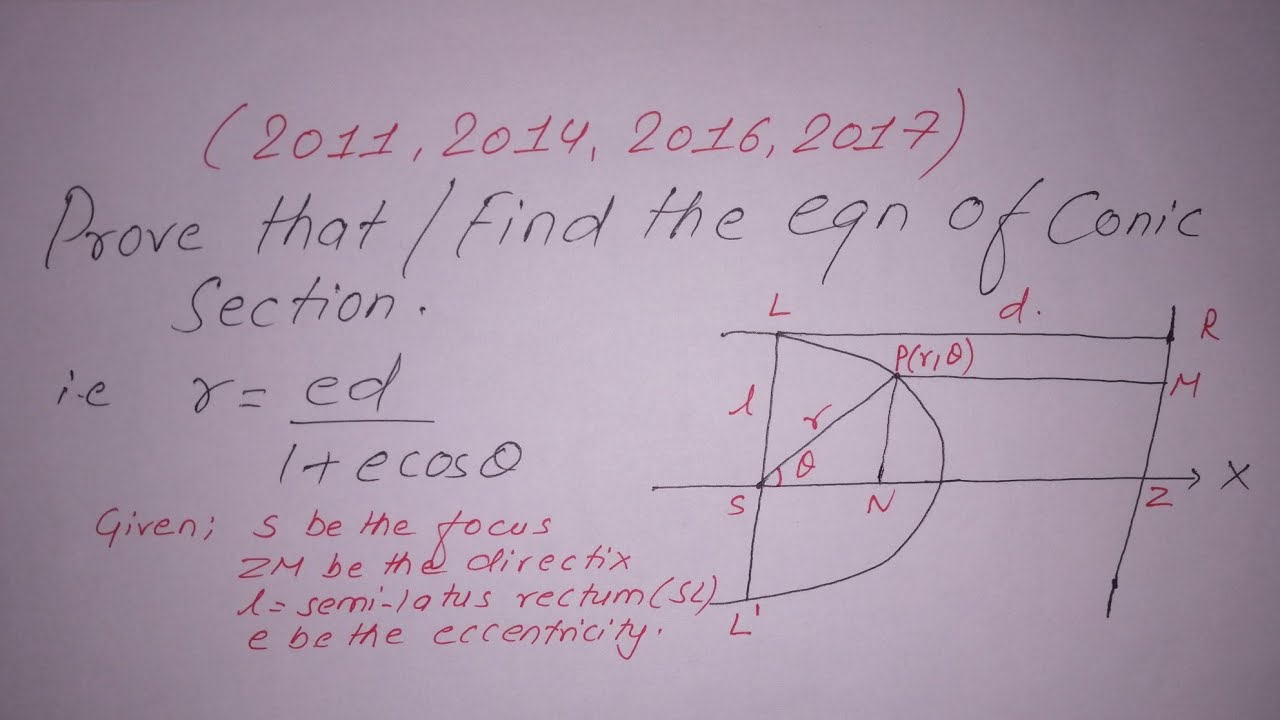 (2011, 2014, 2016, 2017)
Prove that / Find the eqn of Conic
Section.
i.e r = ed
1+ecosθ
Given; S be the focus
ZM be the directix
l = semi-latus rectum (SL)
e be the eccentricity.
L
d.
R
P(r,θ)
M
l
r
θ
S
N
Z
X
L'